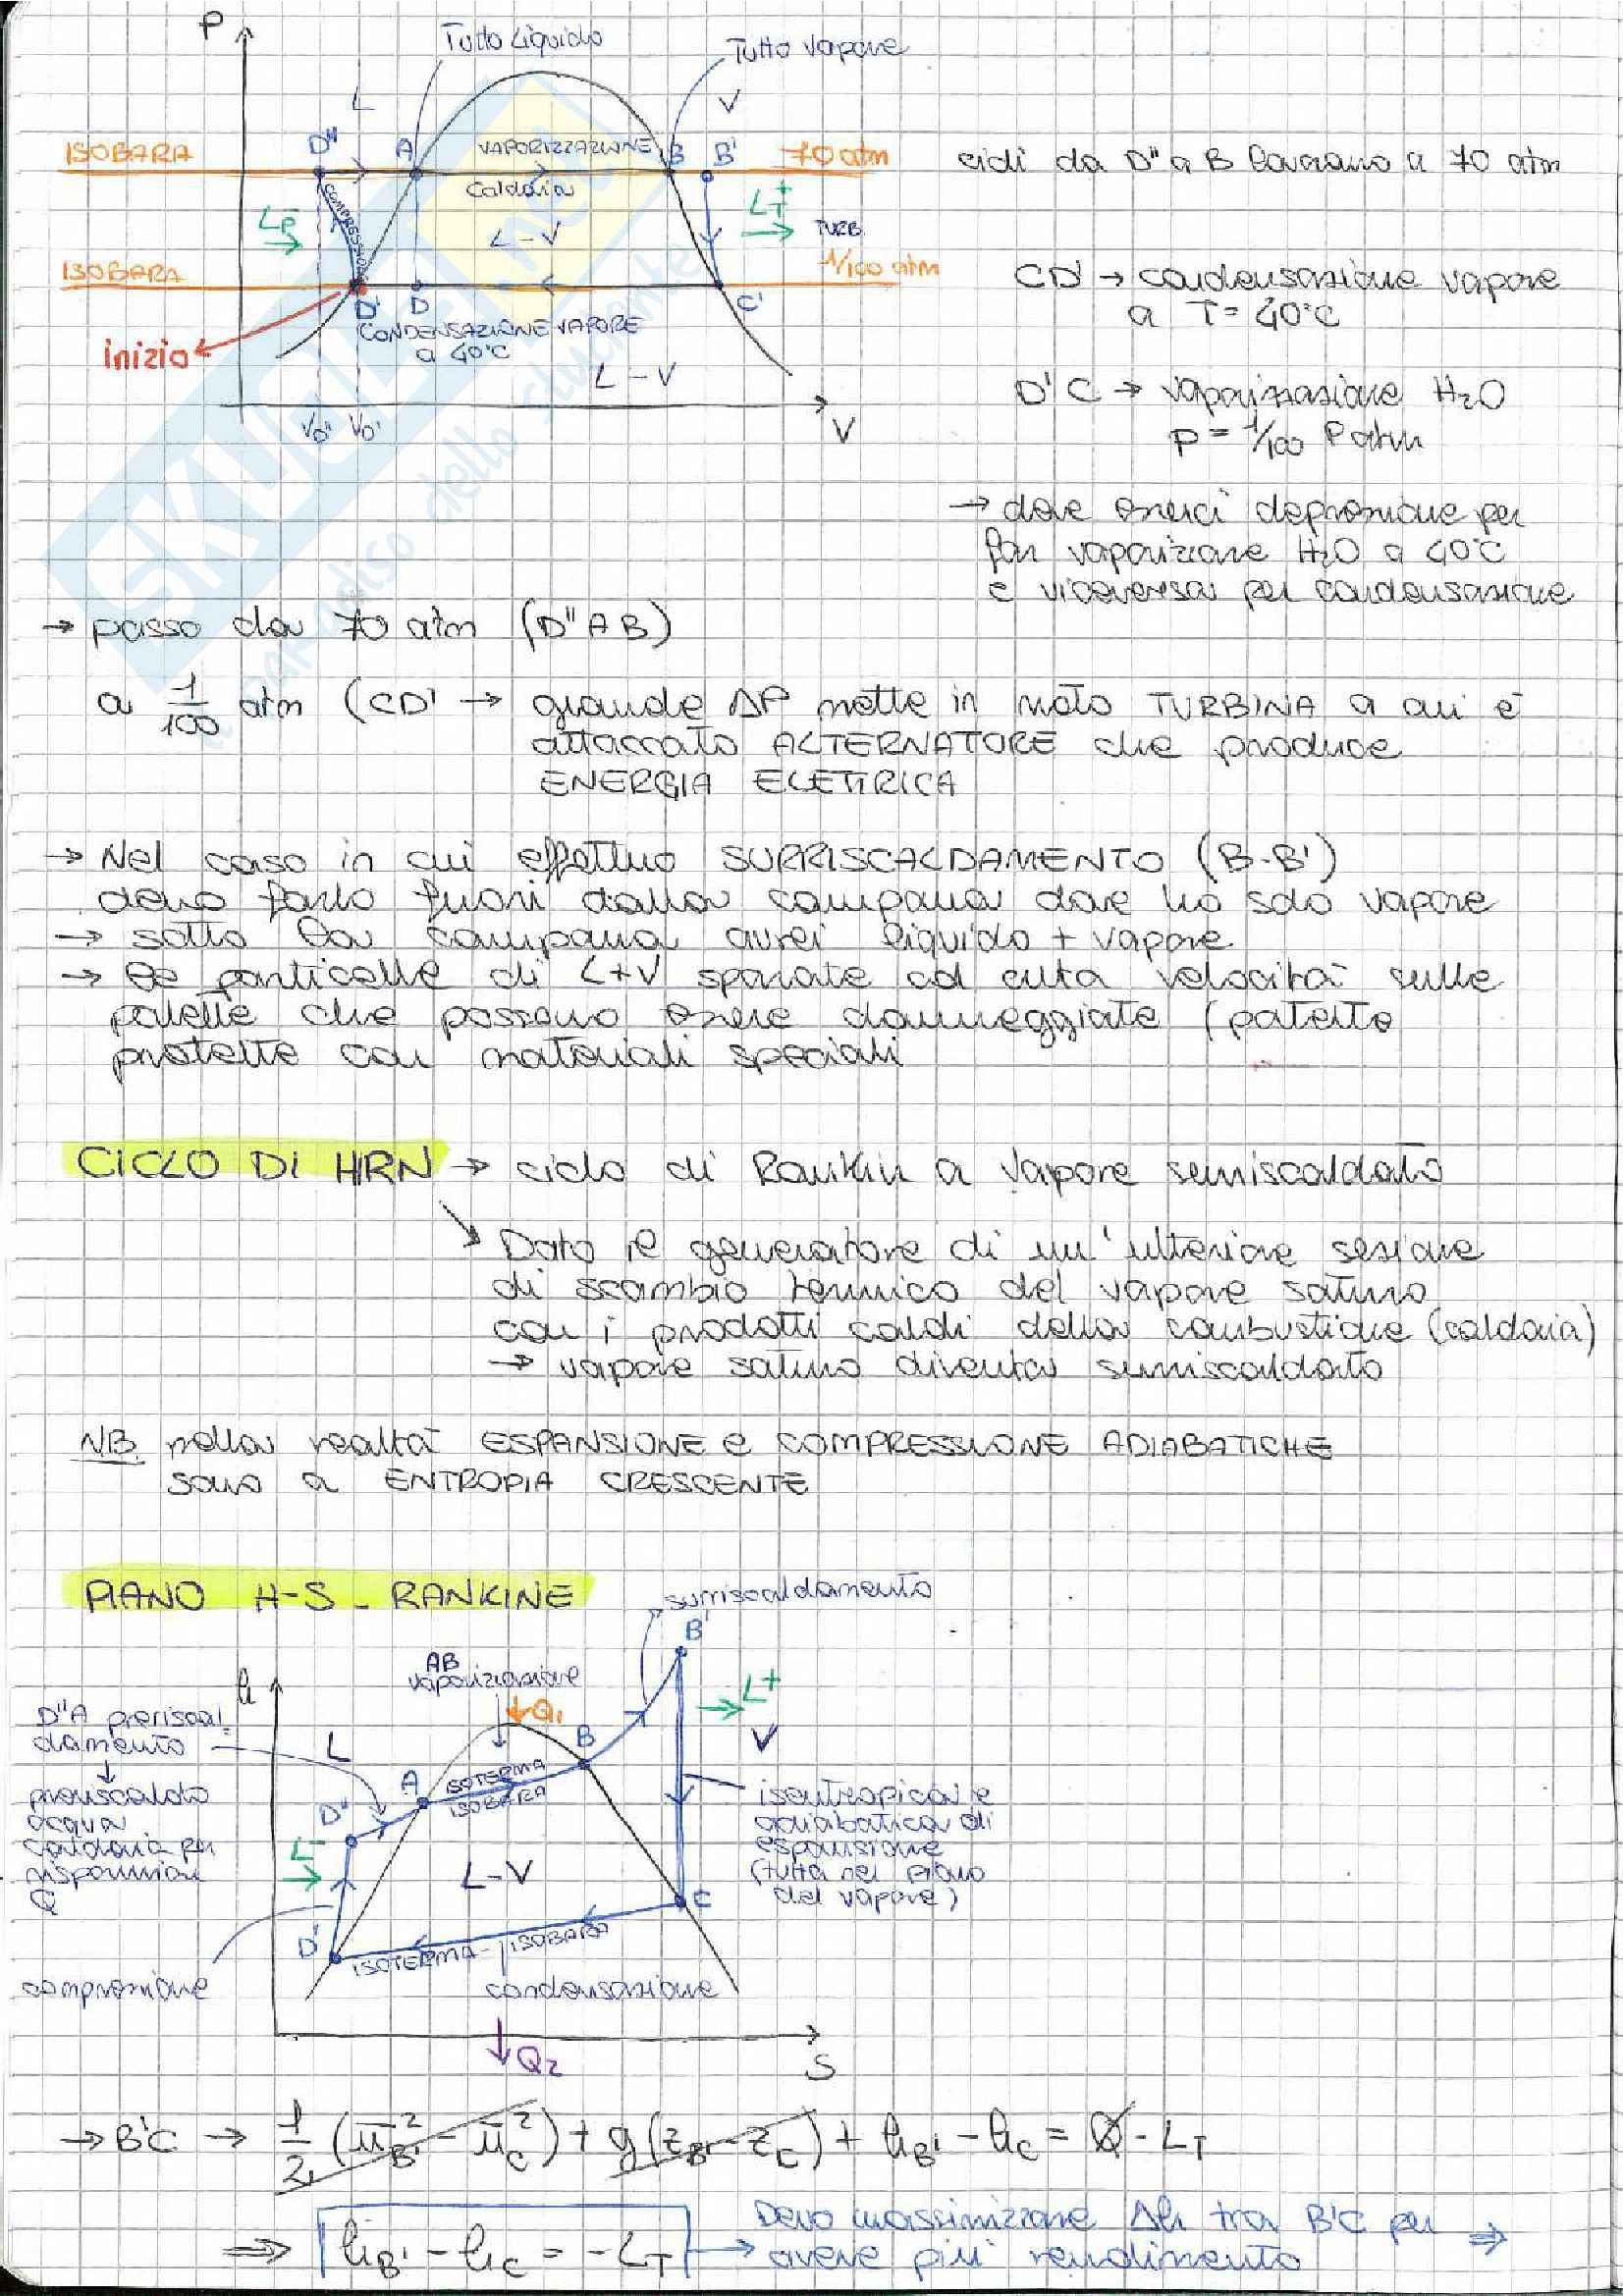 P
Tutto Liquido
Tutto vapore
L
V
ISOBARA
D"
A
VAPORIZZAZIONE
B
B'
70 atm
cicli da D" a B lavorano a 70 atm
Caldaia
COMPRESSIONE
Lp-
LT+
TURB.
L-V
ISOBARA
1/100 atm
D'
D
C'
CD' → condensazione vapore
a T= 40°C
CONDENSAZIONE VAPORE
a 40°C
inizio
L-V
D'C → vaporizzazione H2O
P = 1/100 Patm
VD" VD'
V
→ deve esserci depressione per
far vaporizzare H2O a 40°C
e viceversa per condensazione
→ passo da 70 atm (D"AB)
a 1/100 atm (CD' → grande ΔP mette in moto TURBINA a cui è
attaccato ALTERNATORE che produce
ENERGIA ELETTRICA
→ Nel caso in cui effettuo SURRISCALDAMENTO (B-B')
devo farlo fuori dalla campana dove ho solo vapore
→ sotto la campana avrei liquido + vapore
→ le particelle di L+V sparate ad alta velocità sulle
palette che possono essere danneggiate (palette
protette con materiali speciali
CICLO DI HIRN → ciclo di Rankin a vapore surriscaldato
Dato il generatore di un'ulteriore sezione
di scambio termico del vapore saturo
con i prodotti caldi della combustione (caldaia)
→ vapore saturo diventa surriscaldato
NB. nella realtà ESPANSIONE e COMPRESSIONE ADIABATICHE
sono a ENTROPIA CRESCENTE
PIANO H-S - RANKINE
surriscaldamento
B'
AB
vaporizzazione
h
Q1
L+
D"A preriscal.
damento
L
B
V
A
ISOTERMA
ISOBARA
preriscaldo
acqua
caldaia per
risparmiare
Q
D"
L-
isentropica e
adiabatica di
espansione
(tutta nel piano
del vapore)
L-V
C
D'
ISOTERMA - ISOBARA
compressione
condensazione
Q2
S
→ B'C → 1/2 (ūB'² - ūC²) + g(zB' - zC) + hB' - hC = Q - LT
⇒ hB' - hC = -LT → Devo massimizzare Δh tra B'C per ⇒
avere più rendimento
SKUOLA.net
il paradiso dello studente